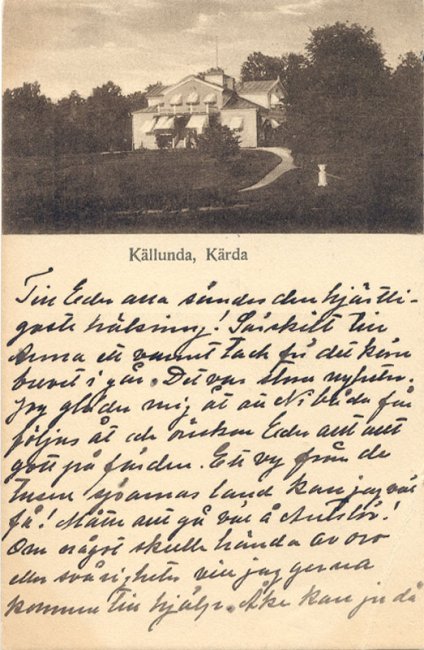 Källunda, Kärda
Till Eder alla sändes den hjärtli-
gaste hälsning! Särskilt till
Anna ett varmt tack för det kära
brevet i går. Det var stora nyheter.
Jag gläder mig åt att Ni båda får
följas åt och önskar Eder allt allt
gott på färden. Ett vy från de
tusen sjöarnas land kan jag väl
få! Måtte allt gå väl å
Om något skulle hända av oro
eller svårigheter vill jag gerna
komma till hjälp. Åke kan ju då